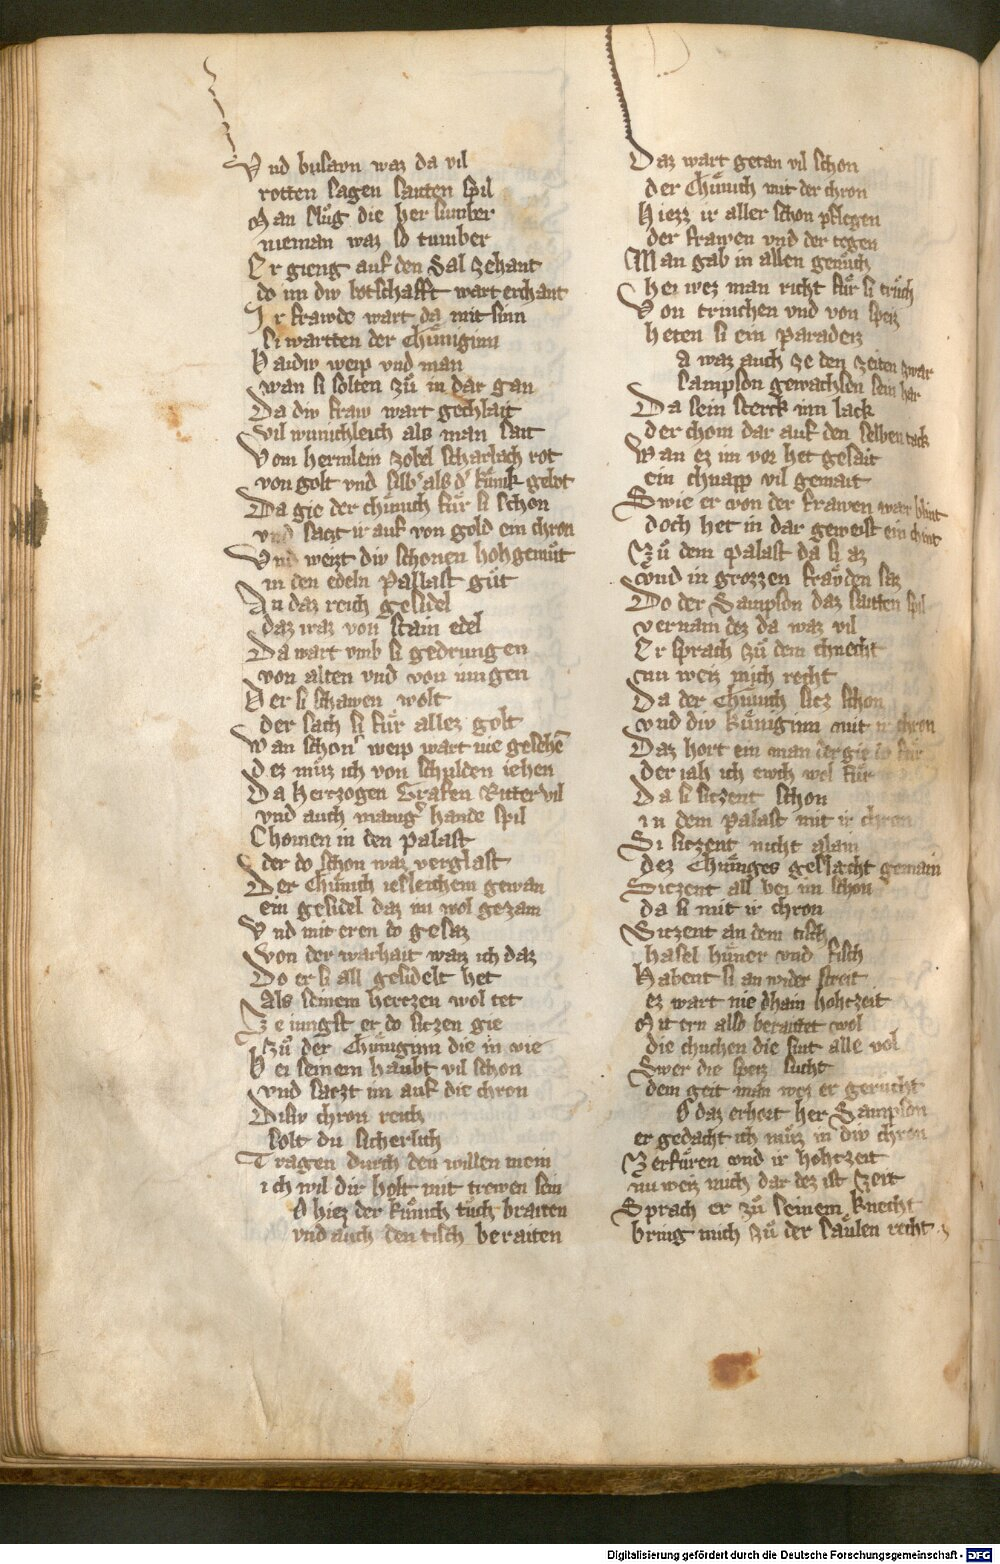 Vnd busawn waz da vil
rotten sagen sauten spil
Man slůg die her sumber
nieman waz so tumber
Er gieng auf den Sal zehant
do im diw botschafft wart erchant
Ir frawde wart da mit sinn
si wartten der Chüniginn
Baidiw weip vnd man
wan si solten zů in dar gan
Da diw fraw wart gechlait
vil wunichleich als man sait
Vom hermlein zobel scharlach rot
von golt vnd silb' als d' künik gebot
Da gie der chünich für si schon
vnd saczt ir auf von gold ein chron
Vnd weizt diw schonen hohgemüt
in den edeln Pallast güt
An daz reich gesidel
daz waz von stain edel
Da wart vmb si gedrungen
von alten vnd von iungen
Wer si schawen wolt
der sach si für allez golt
Wan schon' weip wart nie gesehē
dez můz ich von schulden iehen
Da Hertzogen Grafen Ritter vil
vnd auch manig' hande spil
Chomen in den palast
der do schon waz verglast
Der Chünich iesleichem gewan
ein gesidel daz im wol gezam
Vnd mit eren do gesaz
von der warhait waiz ich daz
Do er si all gesidelt het
als seinem hertzen wol tet
Ze iungst er do siczen gie
zů der Chüniginn die in vie
Bei seinem haubt vil schon
vnd saczt im auf die chron
Disiv chron reich
solt du sicherlich
Tragen durch den willen mein
ich wil dir holt mit trewen sein
o hiez der künich tuch braiten
vnd auch den tisch beraiten
Daz wart getan vil schon
der Chünich mit der chron
Hiezz ir aller schon pflegen
der frawen vnd der tegen
Man gab in allen genůch
hei wez man richt für si trůch
Von trinchen vnd von speiz
heten si ein paradeiz
a waz auch ze den zeiten zwar
sampson gewachsen sein har
Da sein sterck inn lack
der chom dar auf den selben tack
Wan ez im vor het gesait
ein chnapp vil gemait
Swie er von der frawen war blint
doch het in dar geweist ein chint
Zů dem palast da si az
vnd in grozzen frawden saz
Do der Sampson daz saitten spil
vernam dez da waz vil
Er sprach zů dem chnecht
nu weiz mich recht
Da der Chünich sicz schon
vnd diw küniginn mit ir chron
Daz hort ein man der gie do für
der iah ich ewch wol für
Da si siczent schon
in dem palast mit ir chron
Si siczent nicht alain
dez Chüniges geslacht gemain
Siczent all bei im schon
da si mit ir chron
Siczent an dem tisch
hasel hüner vnd fisch
Habent si an wider streit
ez wart nie dhain hohtzeit
Mit ern also beraitet wol
die chuchen die sint alle vol
Swer die speiz sucht
dem geit man wez er gerucht
o daz erhort her Sampson
er gedacht ich müz in diw chron
Zerfüren vnd ir hohtzeit
nu weiz mich dar dez ist zeit
Sprach er zů seinem knecht
bring mich zů der saülen recht
Digitalisierung gefördert durch die Deutsche Forschungsgemeinschaft - DFG